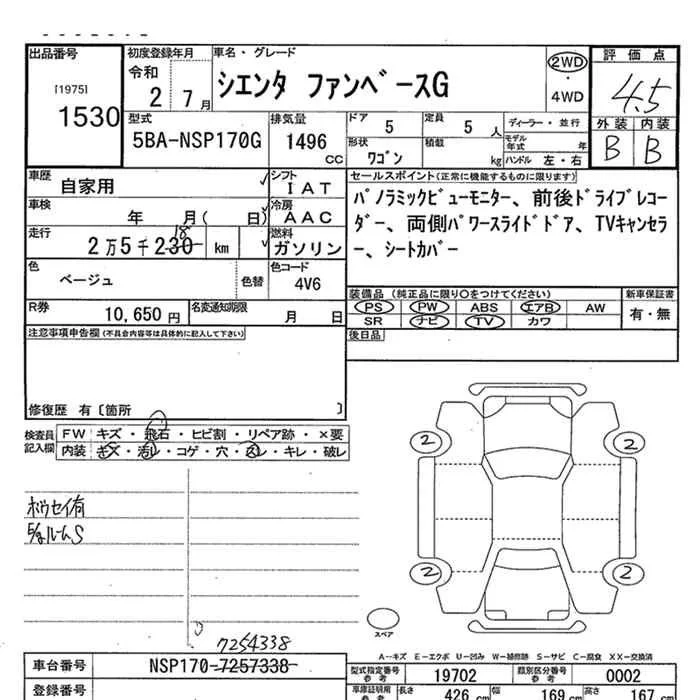 出品番号
[1975]
1530
初度登録年月
令和
2 7月
車名・グレード
シエンタ ファンベースG
2WD
・
4WD
評価点
4.5
外装 内装
B B
型式
5BA-NSP170G
排気量
1496
CC
ドア
5
定員
5 人
形状
ワゴン
積載
kg
ディーラー・並行
モデル年式 年
ハンドル 左・右
車歴
自家用
シフト
IAT
車検
年 月( 日)
冷房
AAC
走行
2万5千230 km
18
燃料
ガソリン
セールスポイント(正常に機能するものに限ります)
パノラミックビューモニター、前後ドライブレコー
ダー、両側パワースライドドア、TVキャンセラ
ー、シートカバー
色
ベージュ
色替
色コード
4V6
R券
10,650 円
名変通知期限
月 日
装備品(純正品に限り○をつけてください)
PS PW ABS エアB AW
SR ナビ TV カワ
新車保証書
有・無
注意事項申告欄(不具合内容等は具体的に記入して下さい)
後日品
修復歴 有〔箇所 〕
検査員
記入欄
FW キズ・飛石・ヒビ割・リペア跡・×要
内装 キズ・汚レ・コゲ・穴・スレ・キレ・破レ
2
2
2
2
ホウセイ有
ルームS
スペア
7254338
A…キズ E…エクボ U…凹み W…補修跡 S…サビ C…腐食 XX…交換済
車台番号
NSP170-7257338
登録番号
型式指定番号
参考
19702
類別区分番号
参考
0002
車庫証明用
参考
長さ
426 cm
幅
169 cm
高さ
167 cm